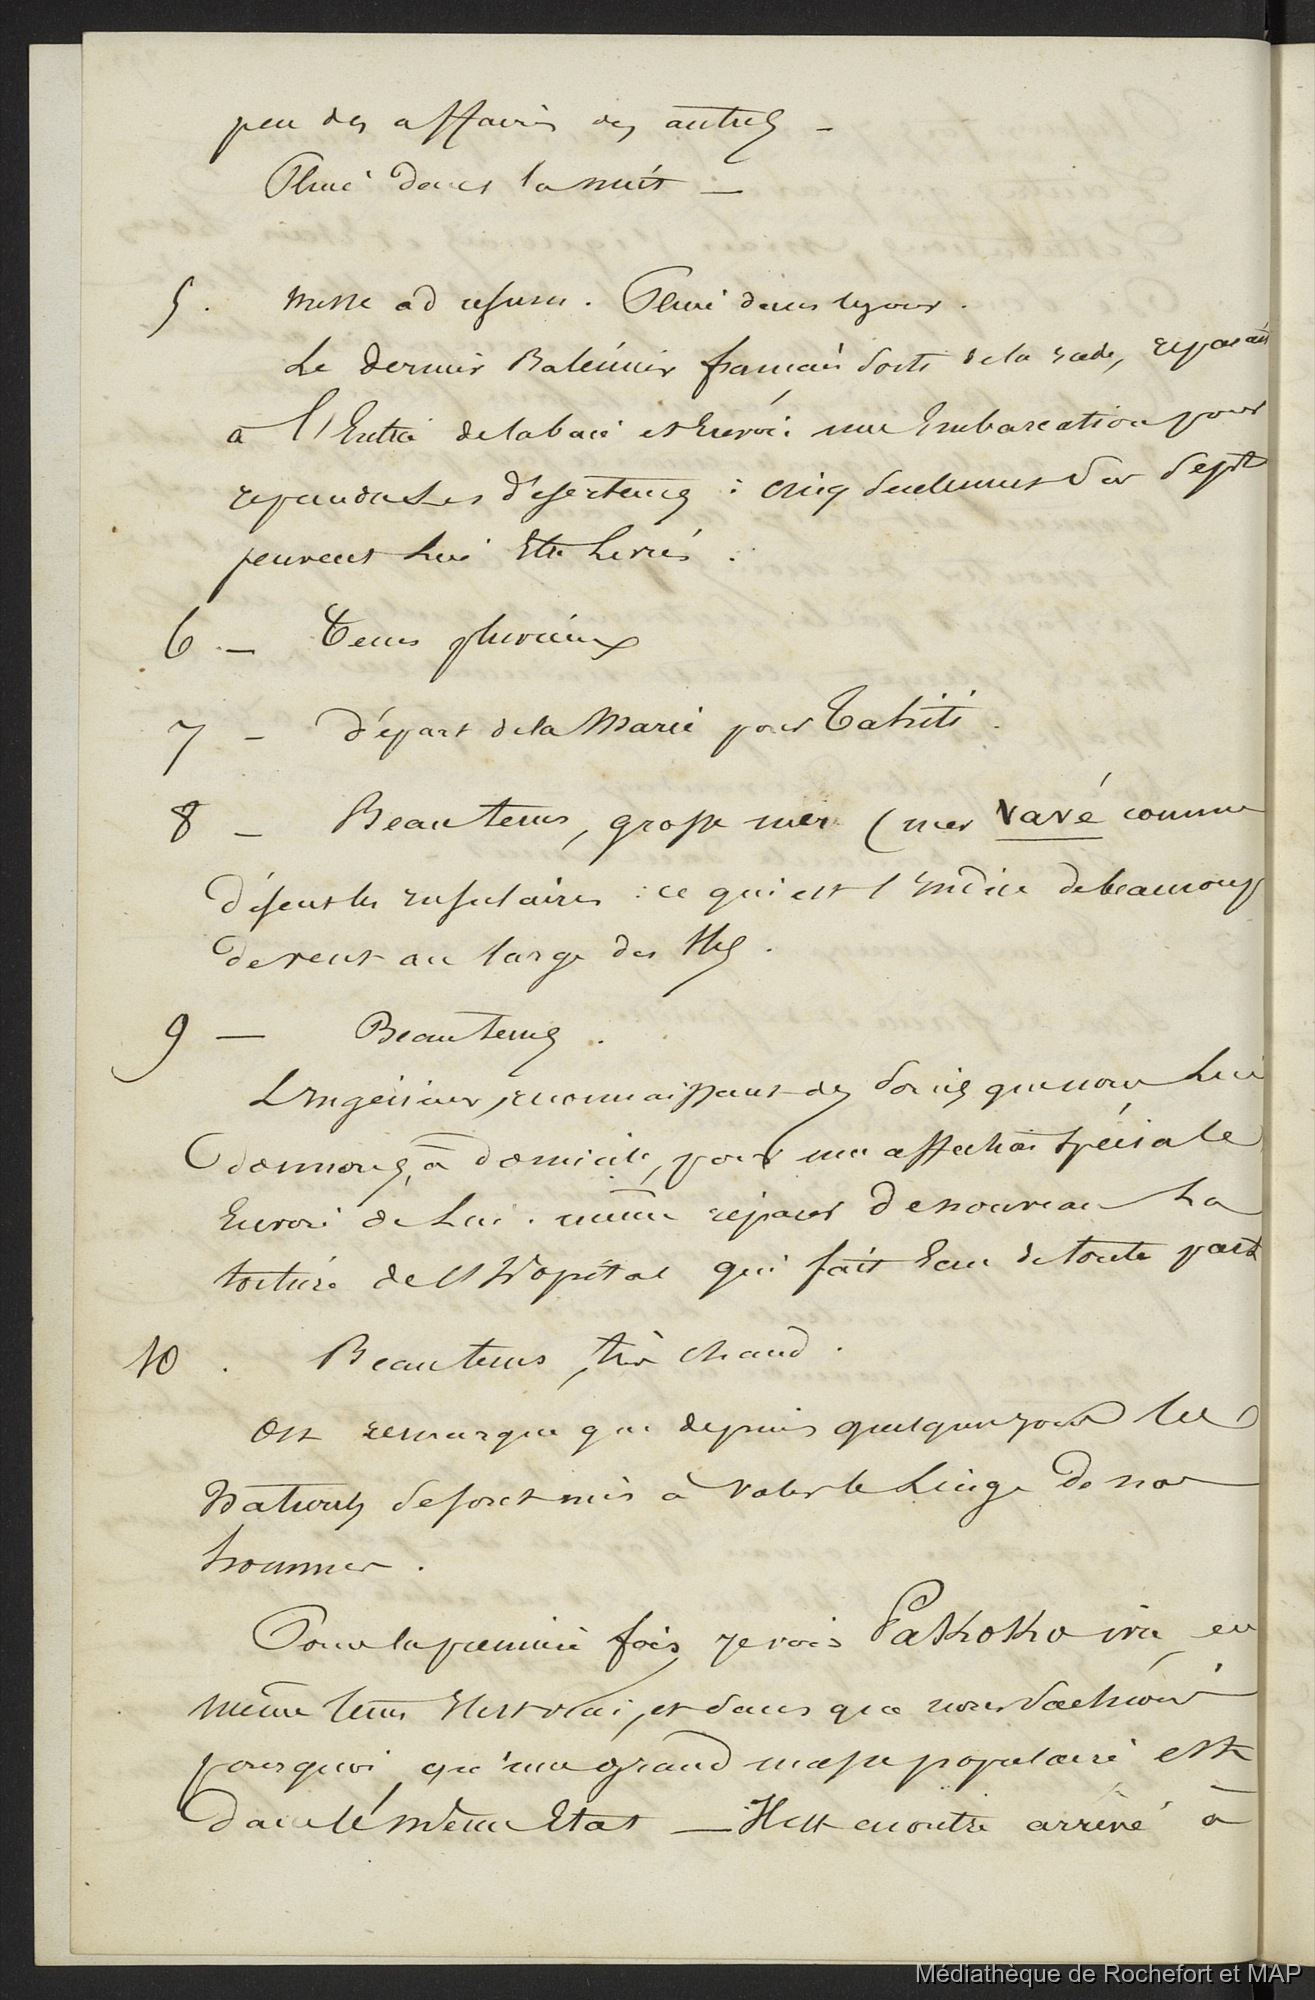 peu des affaires des autres –
Pluie dans la nuit –
5. Messe ad usum. Pluie dans le jour.
Le dernier Baleinier français sorti de la rade, reparait
à l'Entrée de la baie et Envoie une Embarcation pour
reprendre Les déserteurs : cinq seulement sur sept
peuvent Lui Etre Livrés.
6 – Tems pluvieux
7 – départ de la Marie pour Tahiti.
8 – Beau tems, grosse mer (mer vavé comme
disent les insulaires : ce qui est l'indice de beaucoup
de vent au large des Iles.
9 – Beau tems.
L'ingénieur, reconnaissant des soins que nous Lui
donnons, à domicile, pour une affection spéciale
Envoie de Lui-même réparer de nouveau La
toiture de l'Hopital qui fait Eau de toute part
10. Beau tems, très chaud.
On remarque que depuis quelques jours les
Naturels se sont mis à voler le Linge de nos
hommes.
Pour la première fois, je vois Pakoko ivre, en
même tems Il est vrai, et sans que nous sachions
pourquoi, qu'une grand masse populaire est
dans le même Etat – Il est en outre arrivé à
Médiathèque de Rochefort et MAP